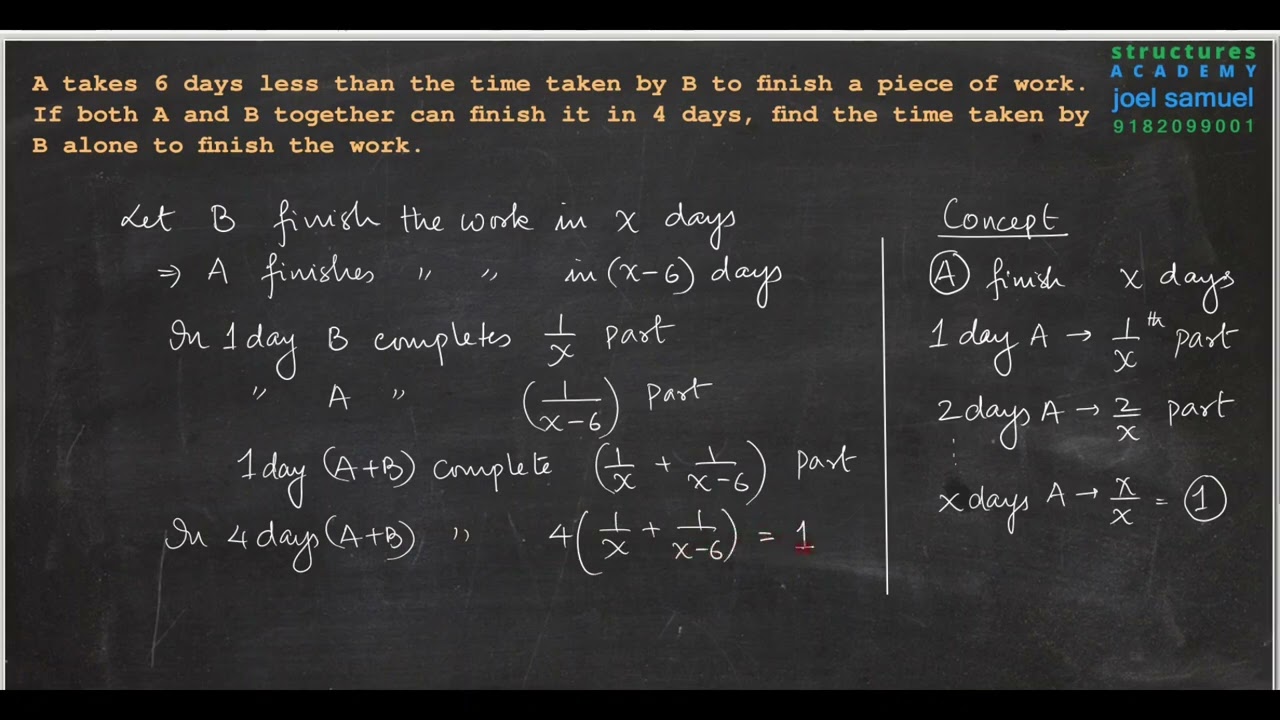 A takes 6 days less than the time taken by B to finish a piece of work.
If both A and B together can finish it in 4 days, find the time taken by
B alone to finish the work.
structures
ACADEMY
joel samuel
9182099001
Let B finish the work in x days
⇒ A finishes " " in (x-6) days
In 1 day B completes 1/x part
" A " (1/(x-6)) part
1 day (A+B) complete (1/x + 1/(x-6)) part
In 4 days (A+B) " 4(1/x + 1/(x-6)) = 1
Concept
A finish x days
1 day A → 1/x th part
2 days A → 2/x part
⋮
x days A → x/x = 1